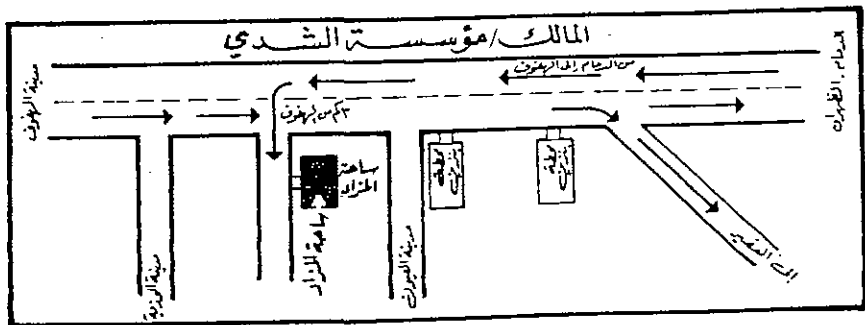 المالك/مؤسسة الشدي
الدمام، الظهران
من الدمام إلى الهفوف
مدينة الهفوف
٣ كم من الهفوف
ساحة
المزاد
ساحة المزاد
محطة
بنزين
محطة
بنزين
مدينة العيون
إلى العقير